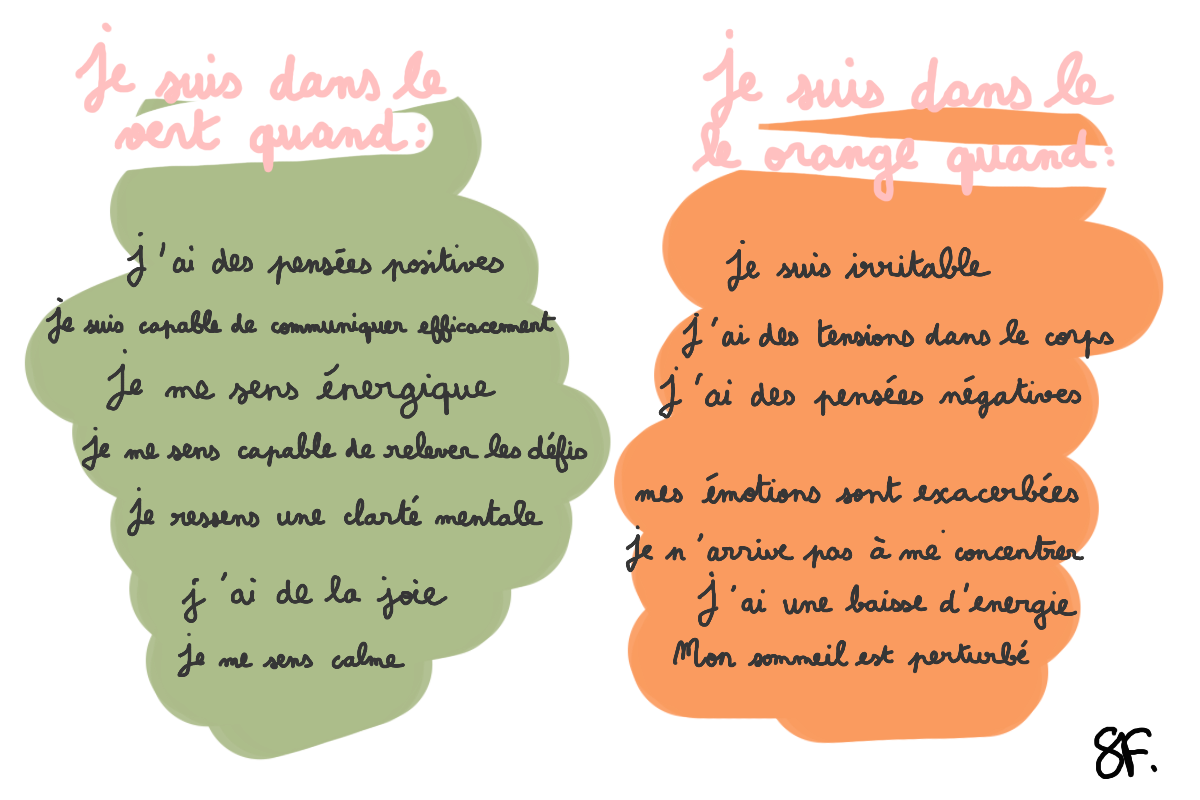 Je suis dans le
vert quand:
J'ai des pensées positives
Je suis capable de communiquer efficacement
Je me sens énergique
Je me sens capable de relever les défis
Je ressens une clarté mentale
j'ai de la joie
Je me sens calme
Je suis dans le
le orange quand:
Je suis irritable
J'ai des tensions dans le corps
J'ai des pensées négatives
mes émotions sont exacerbées
Je n'arrive pas à me concentrer
J'ai une baisse d'energie
Mon sommeil est perturbé
SF.